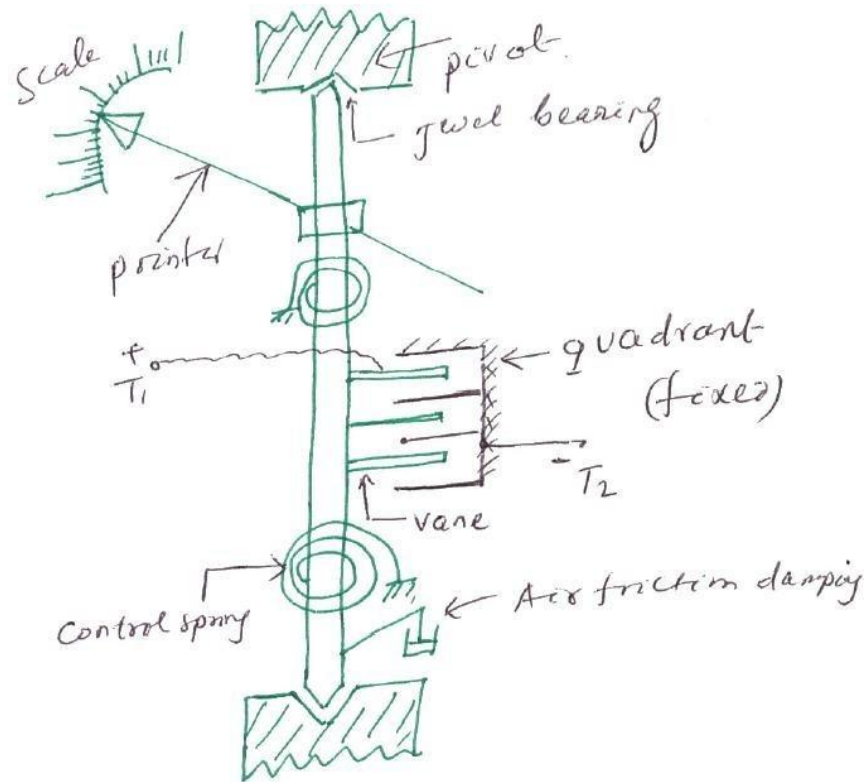 Scale
pivot.
Jwel bearing
pointer
+
T1
quadrant
(fixed)
- T2
vane
control spring
Air friction damping